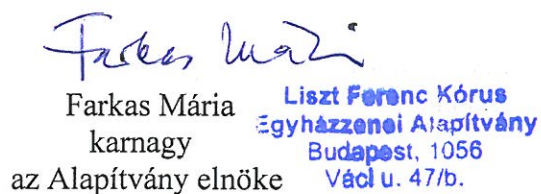 Farkas Mária
Farkas Mária
karnagy
az Alapítvány elnöke
Liszt Ferenc Kórus
Egyházzenei Alapítvány
Budapest, 1056
Váci u. 47/b.